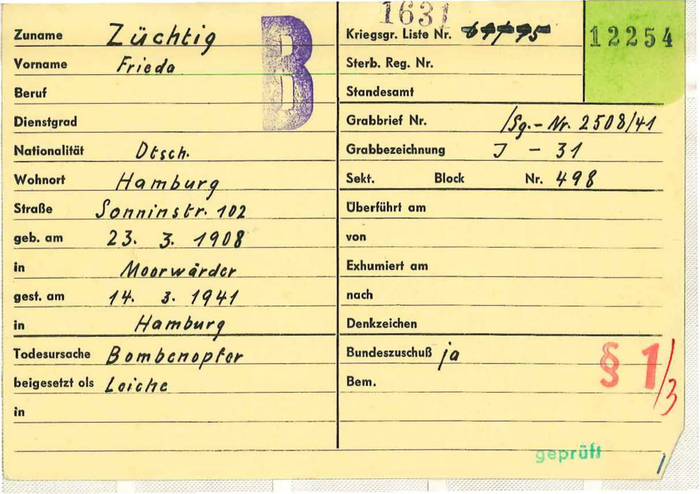 Zuname Züchtig
Vorname Frieda
Beruf
Dienstgrad
Nationalität Dtsch.
Wohnort Hamburg
Straße Sonninstr. 102
geb. am 23. 3. 1908
in Moorwärder
gest. am 14. 3. 1941
in Hamburg
Todesursache Bombenopfer
beigesetzt als Leiche
in
B
1631
Kriegsgr. Liste Nr.
12254
Sterb. Reg. Nr.
Standesamt
Grabbrief Nr. /Sg.-Nr. 2508/41
Grabbezeichnung J - 31
Sekt. Block Nr. 498
Überführt am
von
Exhumiert am
nach
Denkzeichen
Bundeszuschuß ja
Bem.
§ 1/3
geprüft